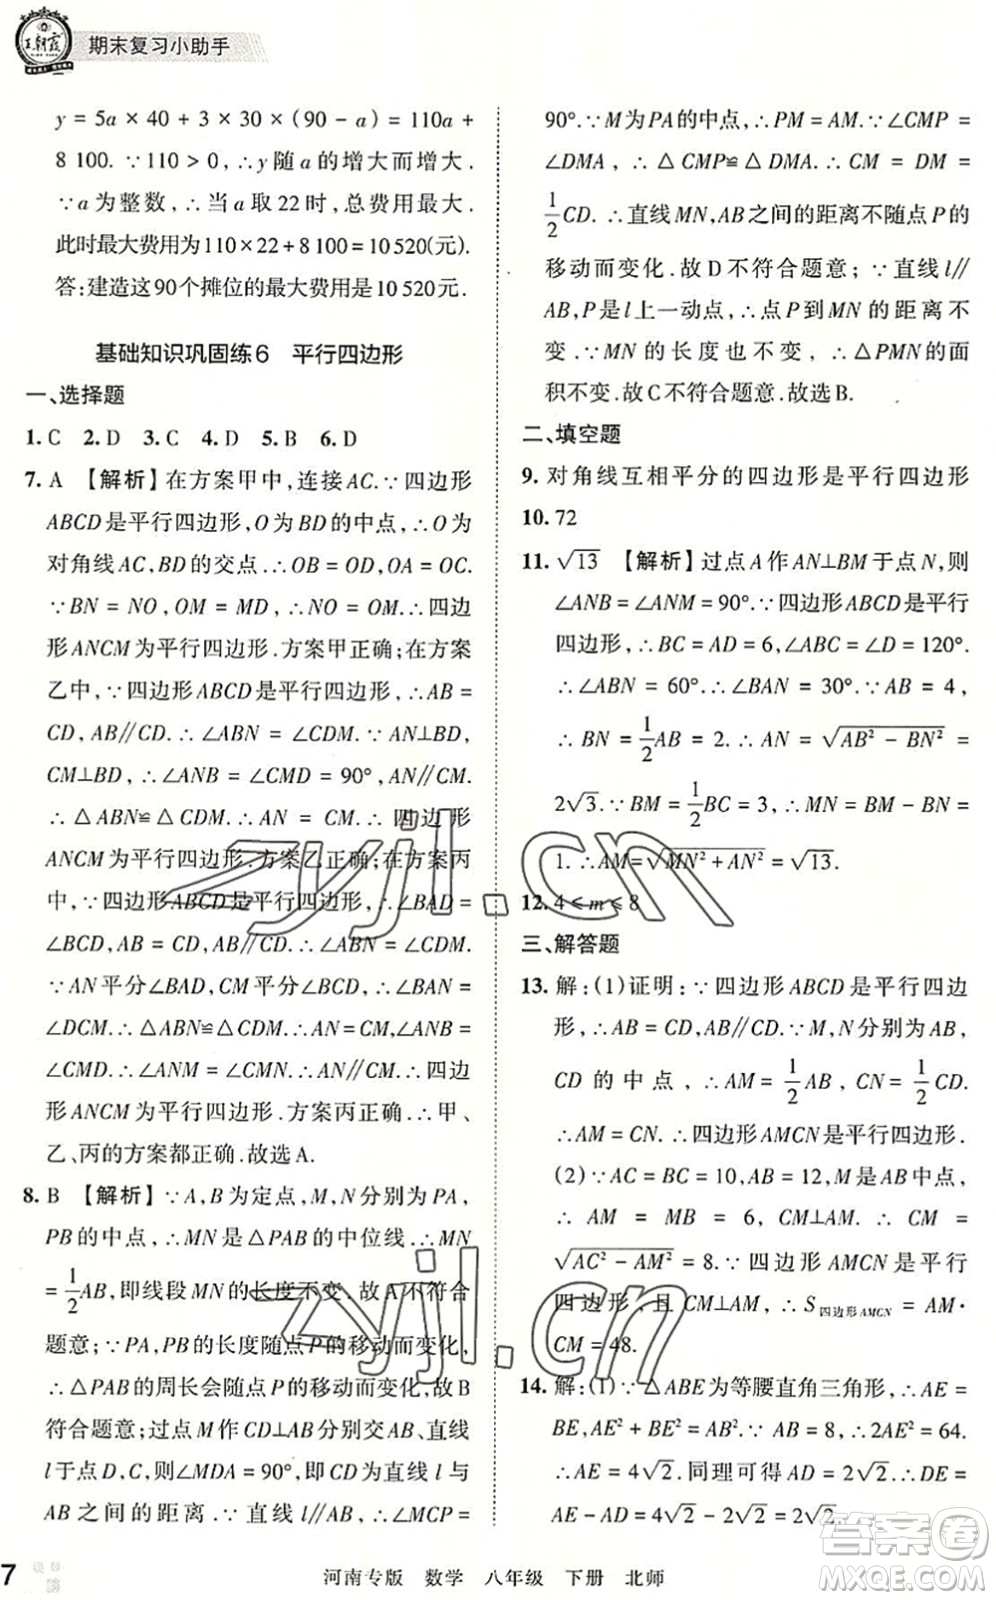 王朝霞
期末复习小助手
y = 5a × 40 + 3 × 30 ×(90 - a) = 110a +
8 100. ∵110 > 0, ∴y 随 a 的增大而增大.
∵a 为整数, ∴当 a 取 22 时, 总费用最大.
此时最大费用为 110×22+8 100=10 520(元).
答:建造这 90 个摊位的最大费用是 10 520 元.
基础知识巩固练 6 平行四边形
一、选择题
1. C 2. D 3. C 4. D 5. B 6. D
7. A 【解析】在方案甲中,连接 AC. ∵四边形
ABCD 是平行四边形, O 为 BD 的中点, ∴O 为
对角线 AC, BD 的交点. ∴OB = OD, OA = OC.
∵BN = NO, OM = MD, ∴NO = OM. ∴四边
形 ANCM 为平行四边形. 方案甲正确; 在方案
乙中, ∵四边形 ABCD 是平行四边形, ∴AB =
CD, AB∥CD. ∴∠ABN = ∠CDM. ∵AN⊥BD,
CM⊥BD, ∴∠ANB = ∠CMD = 90°, AN∥CM.
∴△ABN≌△CDM. ∴AN = CM. ∴四边形
ANCM 为平行四边形. 方案乙正确;在方案丙
中, ∵四边形 ABCD 是平行四边形, ∴∠BAD =
∠BCD, AB = CD, AB∥CD. ∴∠ABN = ∠CDM.
∵AN 平分∠BAD, CM 平分∠BCD, ∴∠BAN =
∠DCM. ∴△ABN≌△CDM. ∴AN = CM, ∠ANB =
∠CMD. ∴∠ANM = ∠CMN. ∴AN∥CM. ∴四边
形 ANCM 为平行四边形. 方案丙正确. ∴甲、
乙、丙的方案都正确. 故选 A.
8. B 【解析】∵A, B 为定点, M, N 分别为 PA,
PB 的中点, ∴MN 是△PAB 的中位线. ∴MN
= 1/2 AB, 即线段 MN 的长度不变. 故 A 不符合
题意; ∵PA, PB 的长度随点 P 的移动而变化,
∴△PAB 的周长会随点 P 的移动而变化, 故 B
符合题意; 过点 M 作 CD⊥AB 分别交 AB, 直线
l 于点 D, C, 则∠MDA = 90°, 即 CD 为直线 l 与
AB 之间的距离. ∵直线 l∥AB, ∴∠MCP =
90°. ∵M 为 PA 的中点, ∴PM = AM. ∵∠CMP =
∠DMA, ∴△CMP≌△DMA. ∴CM = DM =
1/2 CD. ∴直线 MN, AB 之间的距离不随点 P 的
移动而变化. 故 D 不符合题意; ∵直线 l∥
AB, P 是 l 上一动点, ∴点 P 到 MN 的距离不
变. ∵MN 的长度也不变, ∴△PMN 的面
积不变. 故 C 不符合题意. 故选 B.
二、填空题
9. 对角线互相平分的四边形是平行四边形
10. 72
11. √13 【解析】过点 A 作 AN⊥BM 于点 N, 则
∠ANB = ∠ANM = 90°. ∵四边形 ABCD 是平行
四边形, ∴BC = AD = 6, ∠ABC = ∠D = 120°.
∴∠ABN = 60°. ∴∠BAN = 30°. ∵AB = 4,
∴BN = 1/2 AB = 2. ∴AN = √(AB² - BN²) =
2√3. ∵BM = 1/2 BC = 3, ∴MN = BM - BN =
1. ∴AM = √(MN² + AN²) = √13.
12. 4 ≤ m ≤ 8
三、解答题
13. 解:(1)证明: ∵四边形 ABCD 是平行四边
形, ∴AB = CD. ∵M, N 分别为 AB,
CD 的中点, ∴AM = 1/2 AB, CN = 1/2 CD.
∴AM = CN. ∴四边形 AMCN 是平行四边形.
(2) ∵AC = BC = 10, AB = 12, M 是 AB 中点,
∴AM = MB = 6, CM⊥AM. ∴CM =
√(AC² - AM²) = 8. ∵四边形 AMCN 是平行
四边形, 且 CM⊥AM, ∴S四边形AMCN = AM·
CM = 48.
14. 解:(1) ∵△ABE 为等腰直角三角形, ∴AE =
BE, AE² + BE² = AB². ∵AB = 8, ∴2AE² = 64.
∴AE = 4√2. 同理可得 AD = 2√2. ∴DE =
AE - AD = 4√2 - 2√2 = 2√2.
zyjl.cn
zyjl.cn
答案圈
MXQE.COM
7
河南专版 数学 八年级 下册 北师